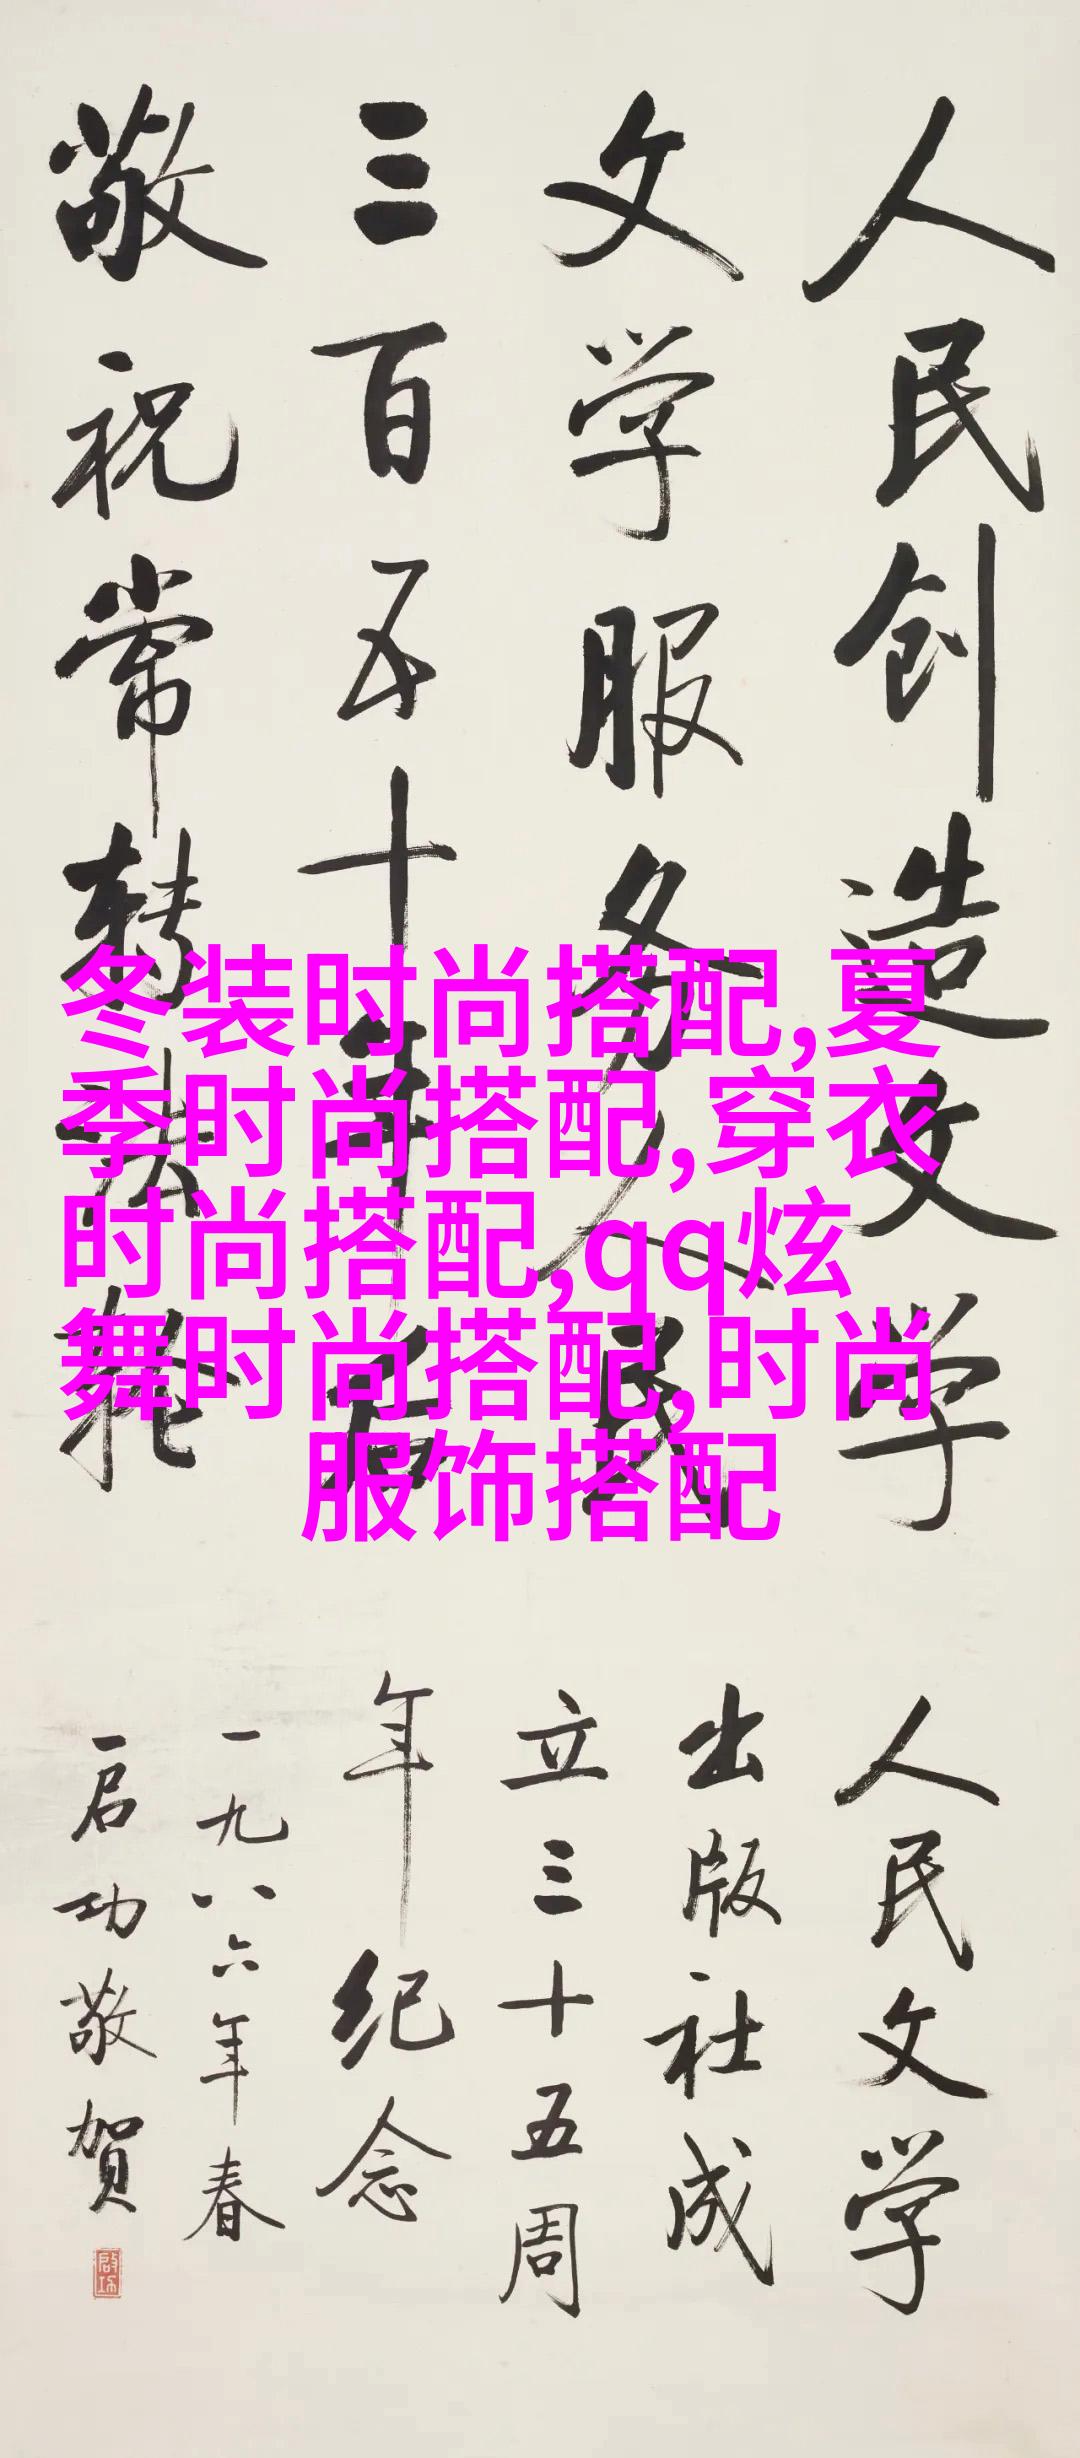 人民创造文学
文学服务人民
三百五十年后
敬祝常转法轮
人民文学
出版社成
立三十五周
年纪念
一九八六年春
启功敬贺
启功
冬装时尚搭配,夏
季时尚搭配,穿衣
时尚搭配,qq炫
舞时尚搭配,时尚
服饰搭配